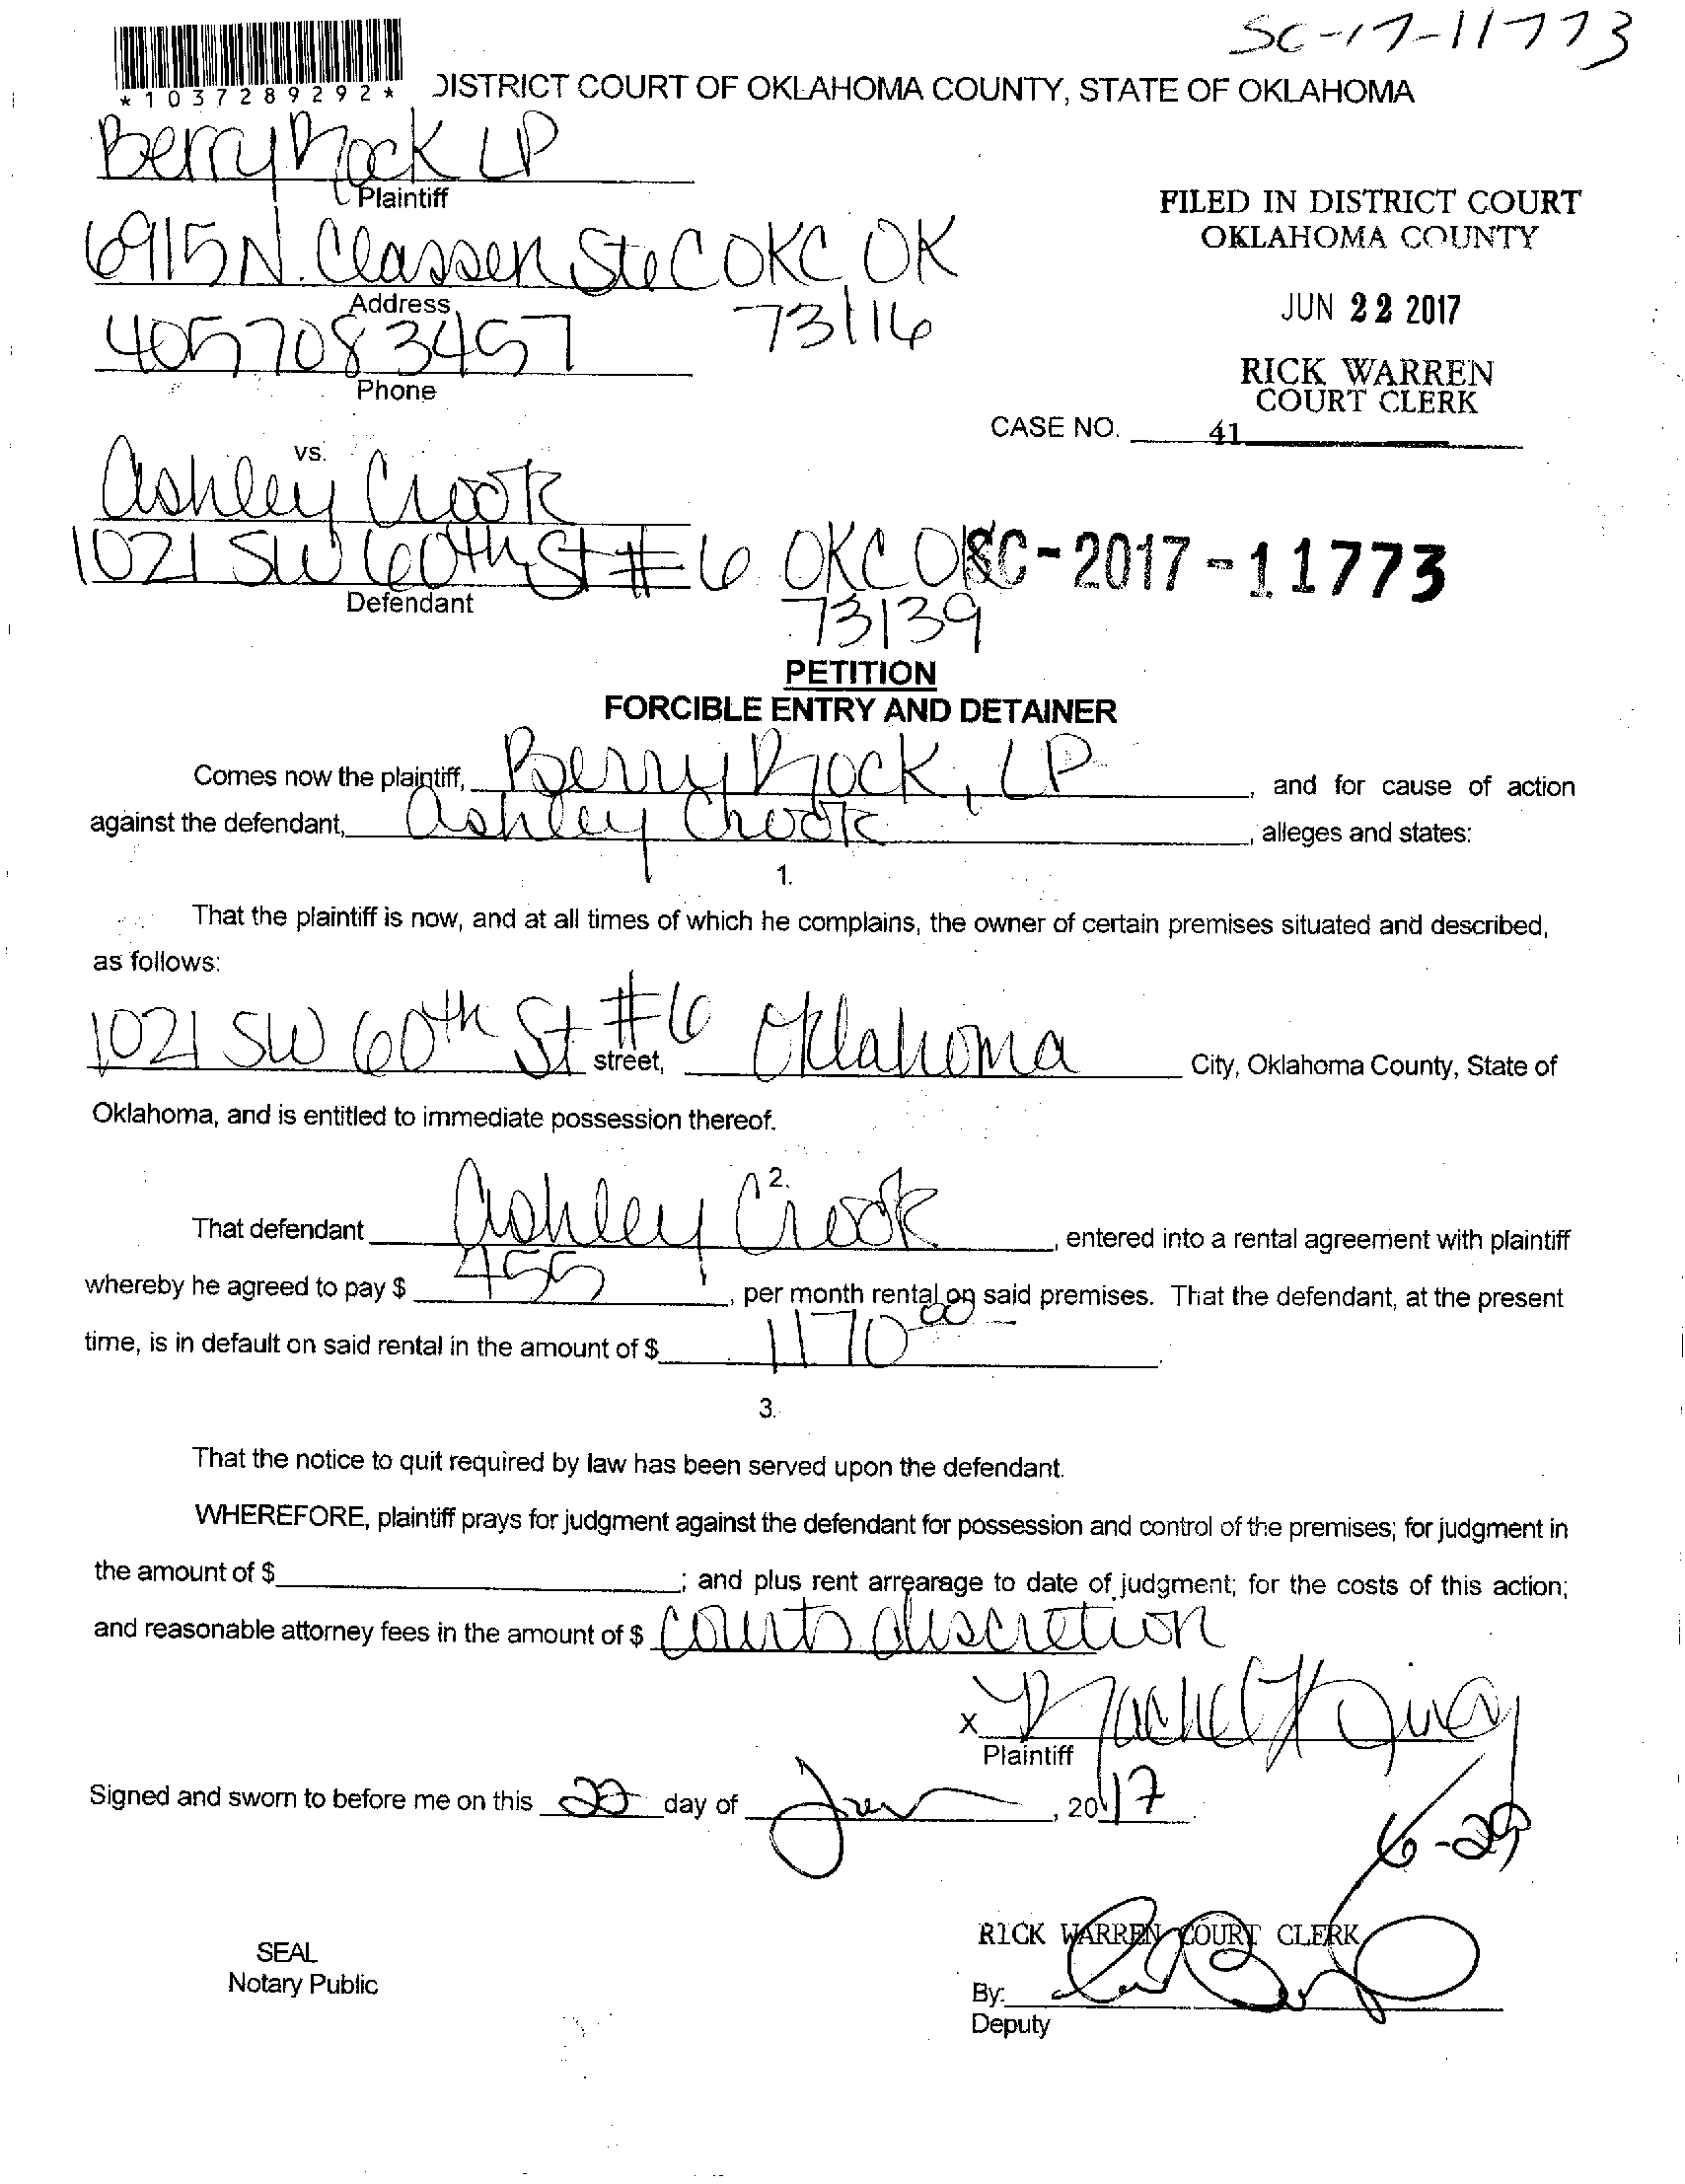 SC-17-11773
*1037289292*
DISTRICT COURT OF OKLAHOMA COUNTY, STATE OF OKLAHOMA
Berry Rock LP
Plaintiff
6915 N. Classen Ste C OKC, OK
Address
73116
4057083457
Phone
FILED IN DISTRICT COURT
OKLAHOMA COUNTY
JUN 22 2017
RICK WARREN
COURT CLERK
CASE NO. 41
vs.
Ashley Crook
1021 SW 60th St #6 OKC OK
SC-2017-11773
Defendant
73139
PETITION
FORCIBLE ENTRY AND DETAINER
Comes now the plaintiff, Berry Rock, LP, and for cause of action
against the defendant, Ashley Crook, alleges and states:
1.
That the plaintiff is now, and at all times of which he complains, the owner of certain premises situated and described,
as follows:
1021 SW 60th St #6 street, Oklahoma City, Oklahoma County, State of
Oklahoma, and is entitled to immediate possession thereof.
2.
That defendant Ashley Crook, entered into a rental agreement with plaintiff
whereby he agreed to pay $ 455, per month rental on said premises. That the defendant, at the present
time, is in default on said rental in the amount of $ 1170 00.
3.
That the notice to quit required by law has been served upon the defendant.
WHEREFORE, plaintiff prays for judgment against the defendant for possession and control of the premises; for judgment in
the amount of $ ; and plus rent arrearage to date of judgment; for the costs of this action;
and reasonable attorney fees in the amount of $ courts discretion
X Rachel King
Plaintiff
Signed and sworn to before me on this 22 day of June, 2017
6-29
RICK WARREN COURT CLERK
SEAL
Notary Public
By:
Deputy